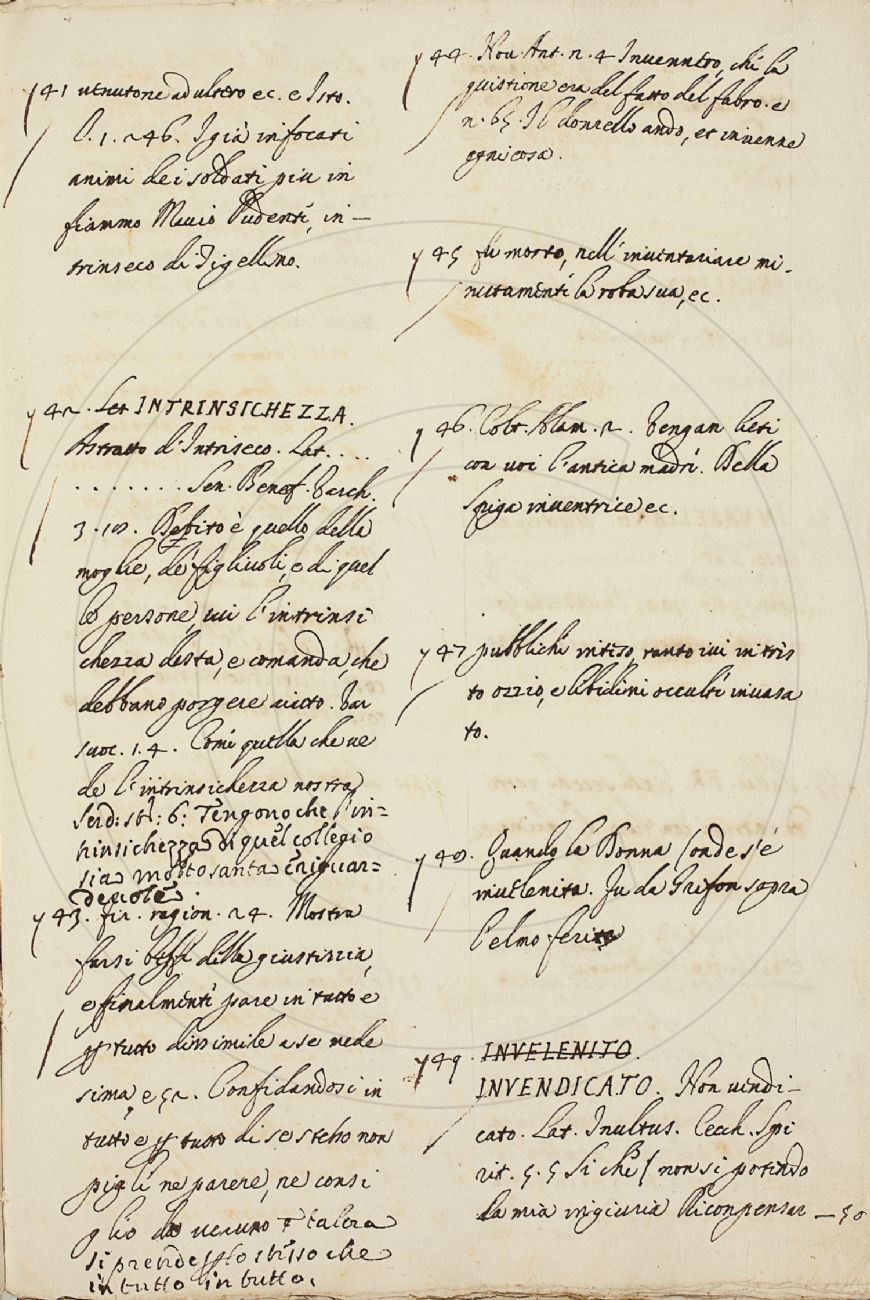 y 41 venutone adultero ec. e Isto.
l. 1. 246. I già infocati
animi dei soldati piu in
fiammo Mevio Pudente, in-
trinseco di Tigellino.
y 42. Let INTRINSICHEZZA.
Astratto d'Intriseco. Lat. . . .
. . . . . . . . Sen. Benef. Varch.
3. 18. Debito è quello della
moglie, de figliuoli, e di quel
le persone, cui l'intrinsi
chezza desta, e comanda, che
debbano porgere aiuto. Var
suoc. 1. 4. Come quella che ve
de l'intrinsichezza nostra
Serd: st: 6: Tengono che l'in=
trinsichezza di quel collegio
sia molto santa e riguar=
devole.
y 43. fir. ragion. 24. Mostra
farsi beffe della giustizia,
e finalmente pare in tutto e
p tutto dissimile a se mede
sima, e 52. Confidandosi in
tutto e p tutto di se stesso non
pigli ne parere, ne consi
glio da veruno e talora
si prende p lo stesso che
in tutto in tutto.
y 44. Nov. Ant. n. 4 Invennero, che la
quistione era del fatto del fabro. e
n. 65. Il donzello andò, et invenne
ogni cosa.
y 45 fu morto, nell'inventariare mi-
nutamente la roba sua, ec.
y 46. Colt. Alam. 2. Vengan lieti
con voi l'antica madre. Della
Spiga inventrice ec.
y 47 pubbliche vitizo, tanto ivi in tris
to ozzio, e libidini occulte invasa
to.
y 48. Quando la Donna (onde s'è
invelenita. Fu da Grifon sopra
l'elmo ferita
y 49. INVELENITO.
INVENDICATO. Non vendi-
cato. Lat. Inultus. Cecch. Spi
rit. 5. 5 Si che (non si potendo
la mia ingiuria Ricompensar — 50